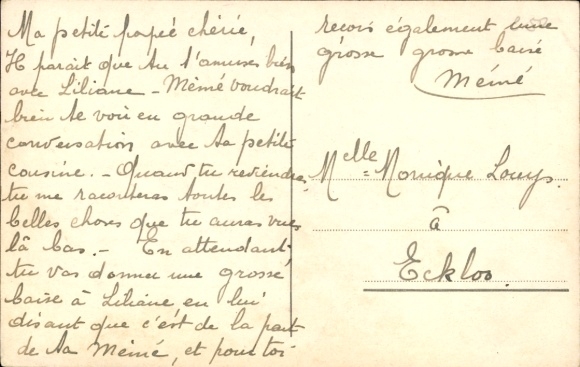 Ma petite papeé chérie,
Il parait que tu t'amuses bien
avec Liliane - Mémé voudrait
bien te voir en grande
conversation avec ta petite
cousine. - Quand tu reviendras
tu me raconteras toutes les
belles choses que tu auras vues
là bas. - En attendant
tu vas donner une grosse
baise à Liliane en lui
disant que c'est de la part
de ta Mémé, et pour toi
reçois également une
grosse grosse baise
Mémé
Melle Monique Louys
à
Eckloo.